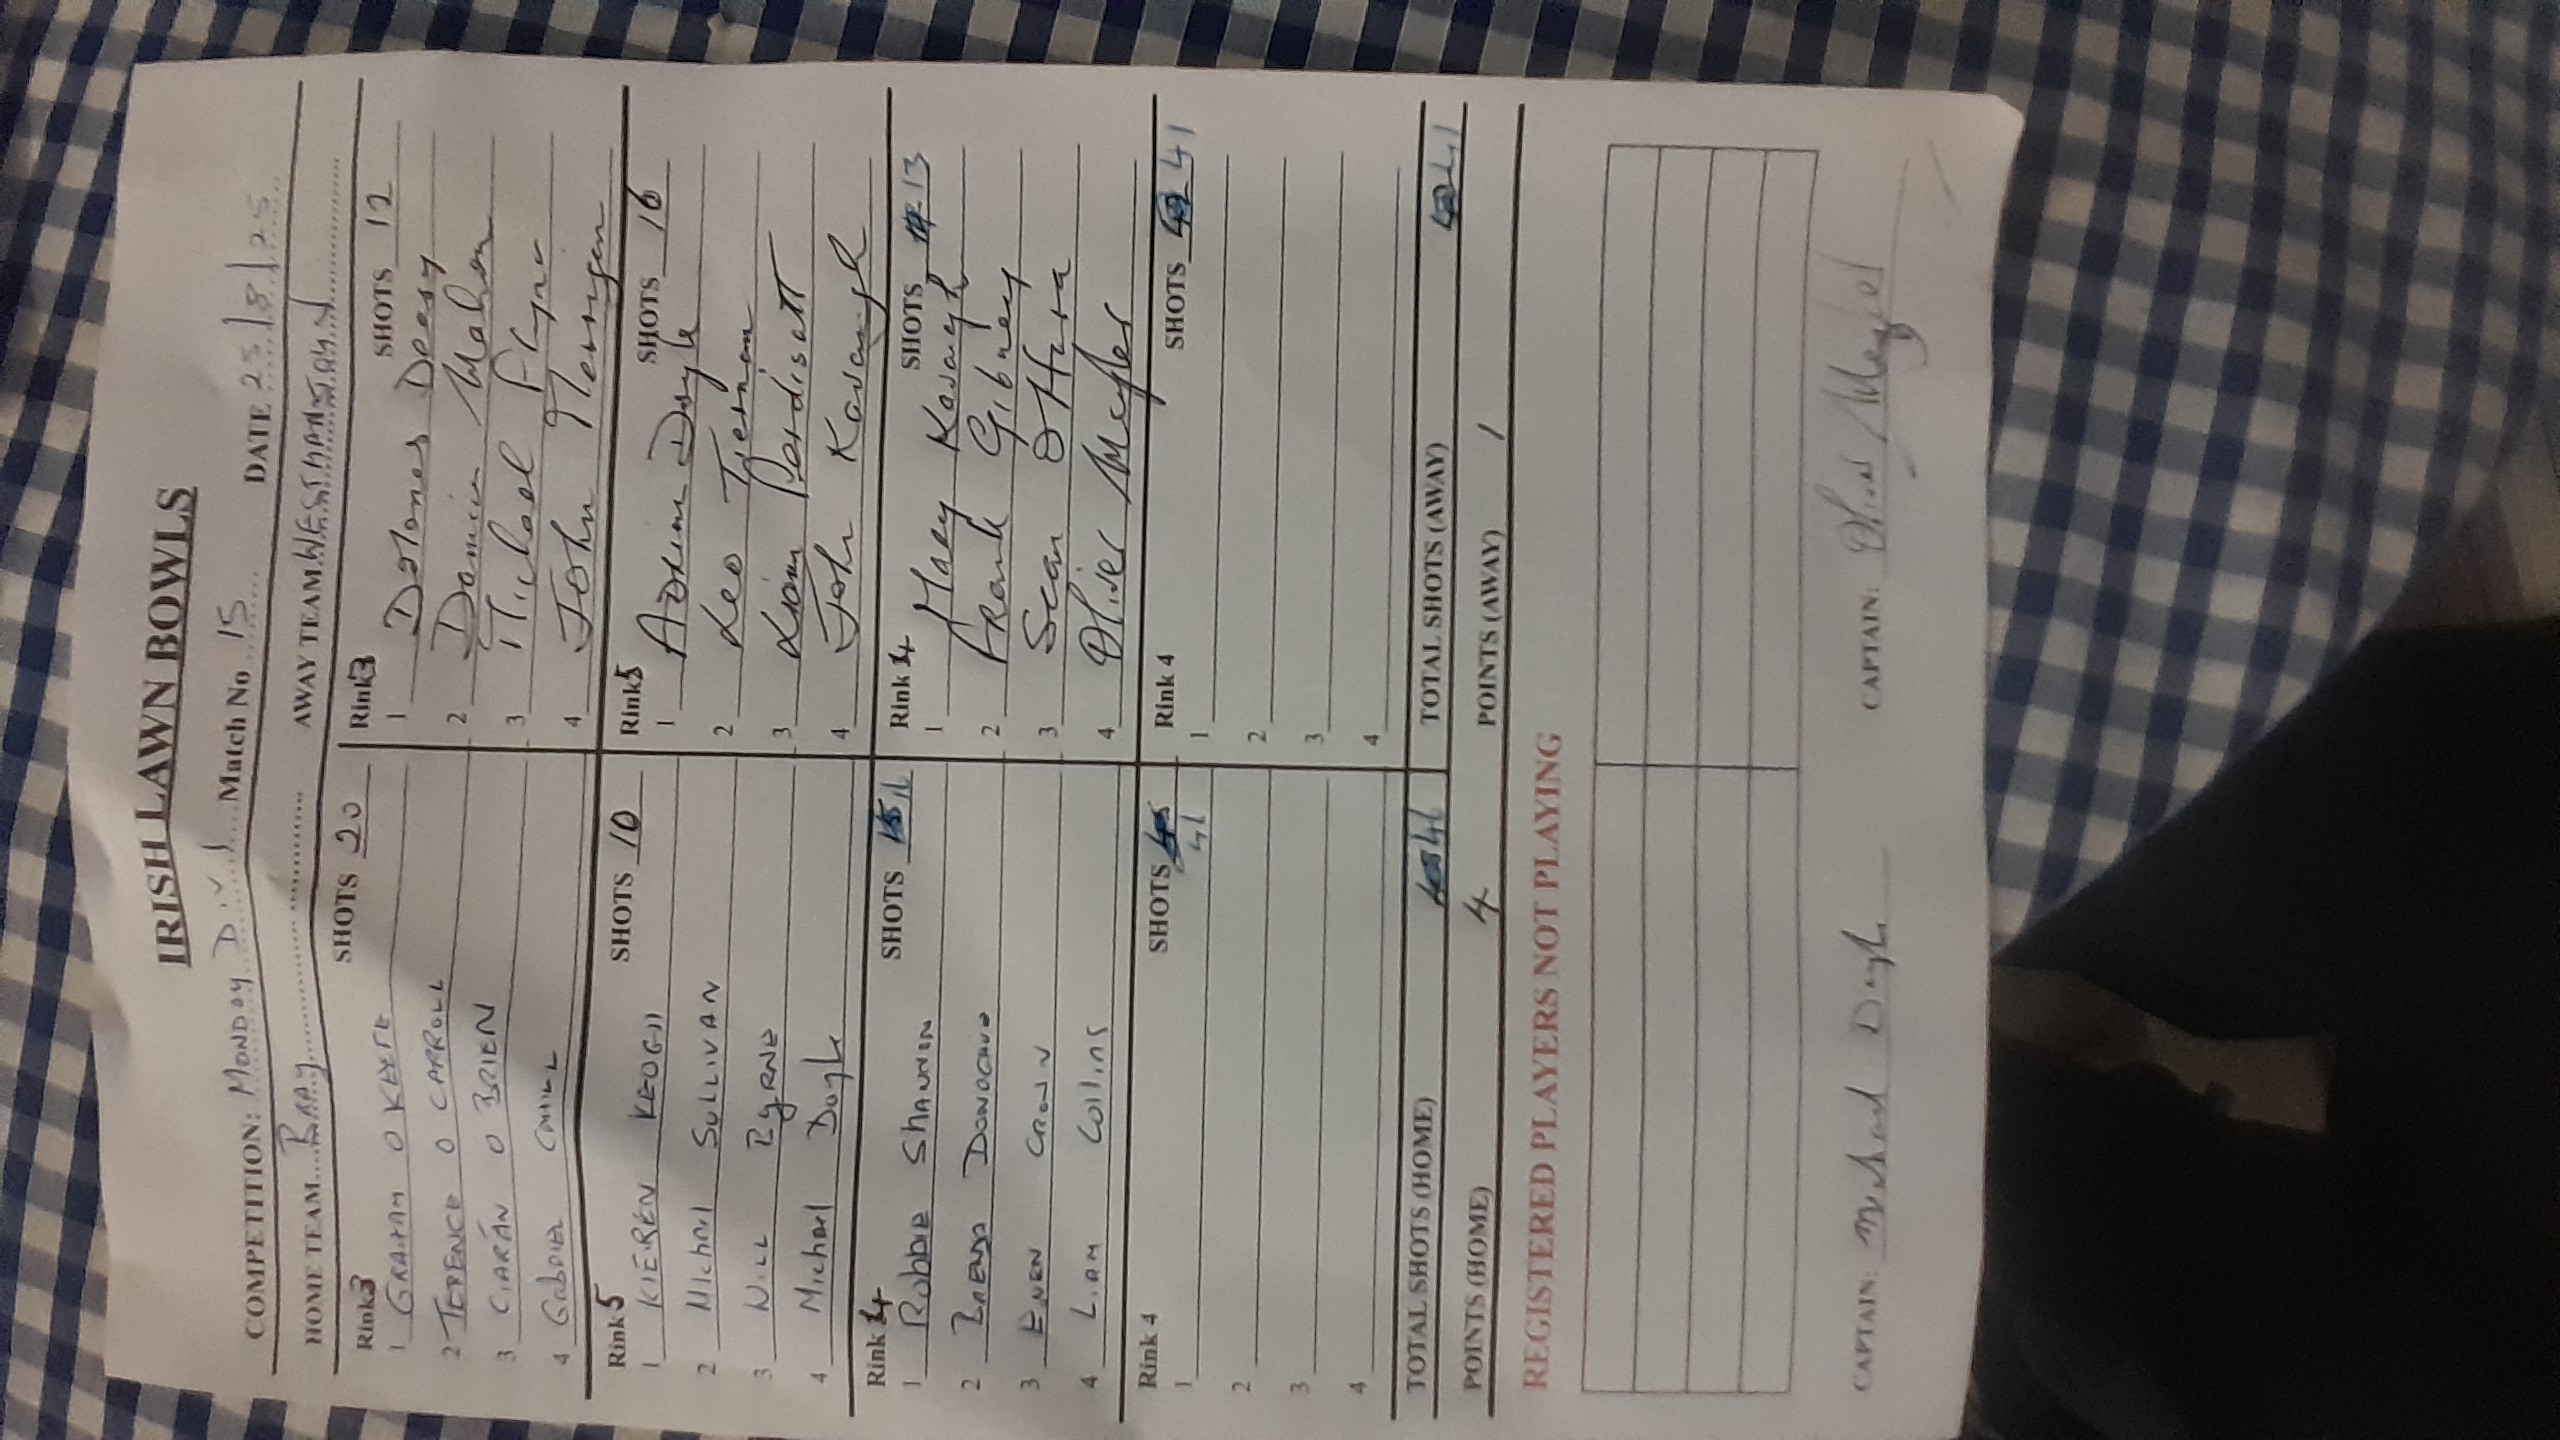 IRISH LAWN BOWLS
COMPETITION: MONDAY DIV 1 Match No 15 DATE 25/8/25
HOME TEAM BRAY AWAY TEAM WESTMANSTOWN
Rink 3 SHOTS 20 Rink 3 SHOTS 12
1 GRAHAM O KEEFE 1 Dolores Deery
2 TERENCE O CARROLL 2 Damien Mahon
3 CIARÁN O BRIEN 3 Michael Flynn
4 GABRIEL CAHILL 4 John
Rink 5 SHOTS 10 Rink 5 SHOTS 16
1 KIEREN KEOGH 1 Adrian Doyle
2 MIchael SULLIVAN 2 Leo Tiernan
3 NILL ByRNE 3 Liam
4 Michael Doyle 4 John Kavanagh
Rink 4 SHOTS Rink 4 SHOTS 13
1 RObbIE SHANNON 1 Mary Kavanagh
2 BRENDA DONOGHUE 2 Frank Gibney
3 3 Sean O Hara
4 LIAM Collins 4 Oliver Meyler
Rink 4 SHOTS 41 Rink 4 SHOTS 41
1 1
2 2
3 3
4 4
TOTAL SHOTS (HOME) TOTAL SHOTS (AWAY) 41
POINTS (HOME) 4 POINTS (AWAY) 1
REGISTERED PLAYERS NOT PLAYING
CAPTAIN: Michael Doyle CAPTAIN: Oliver Meyler